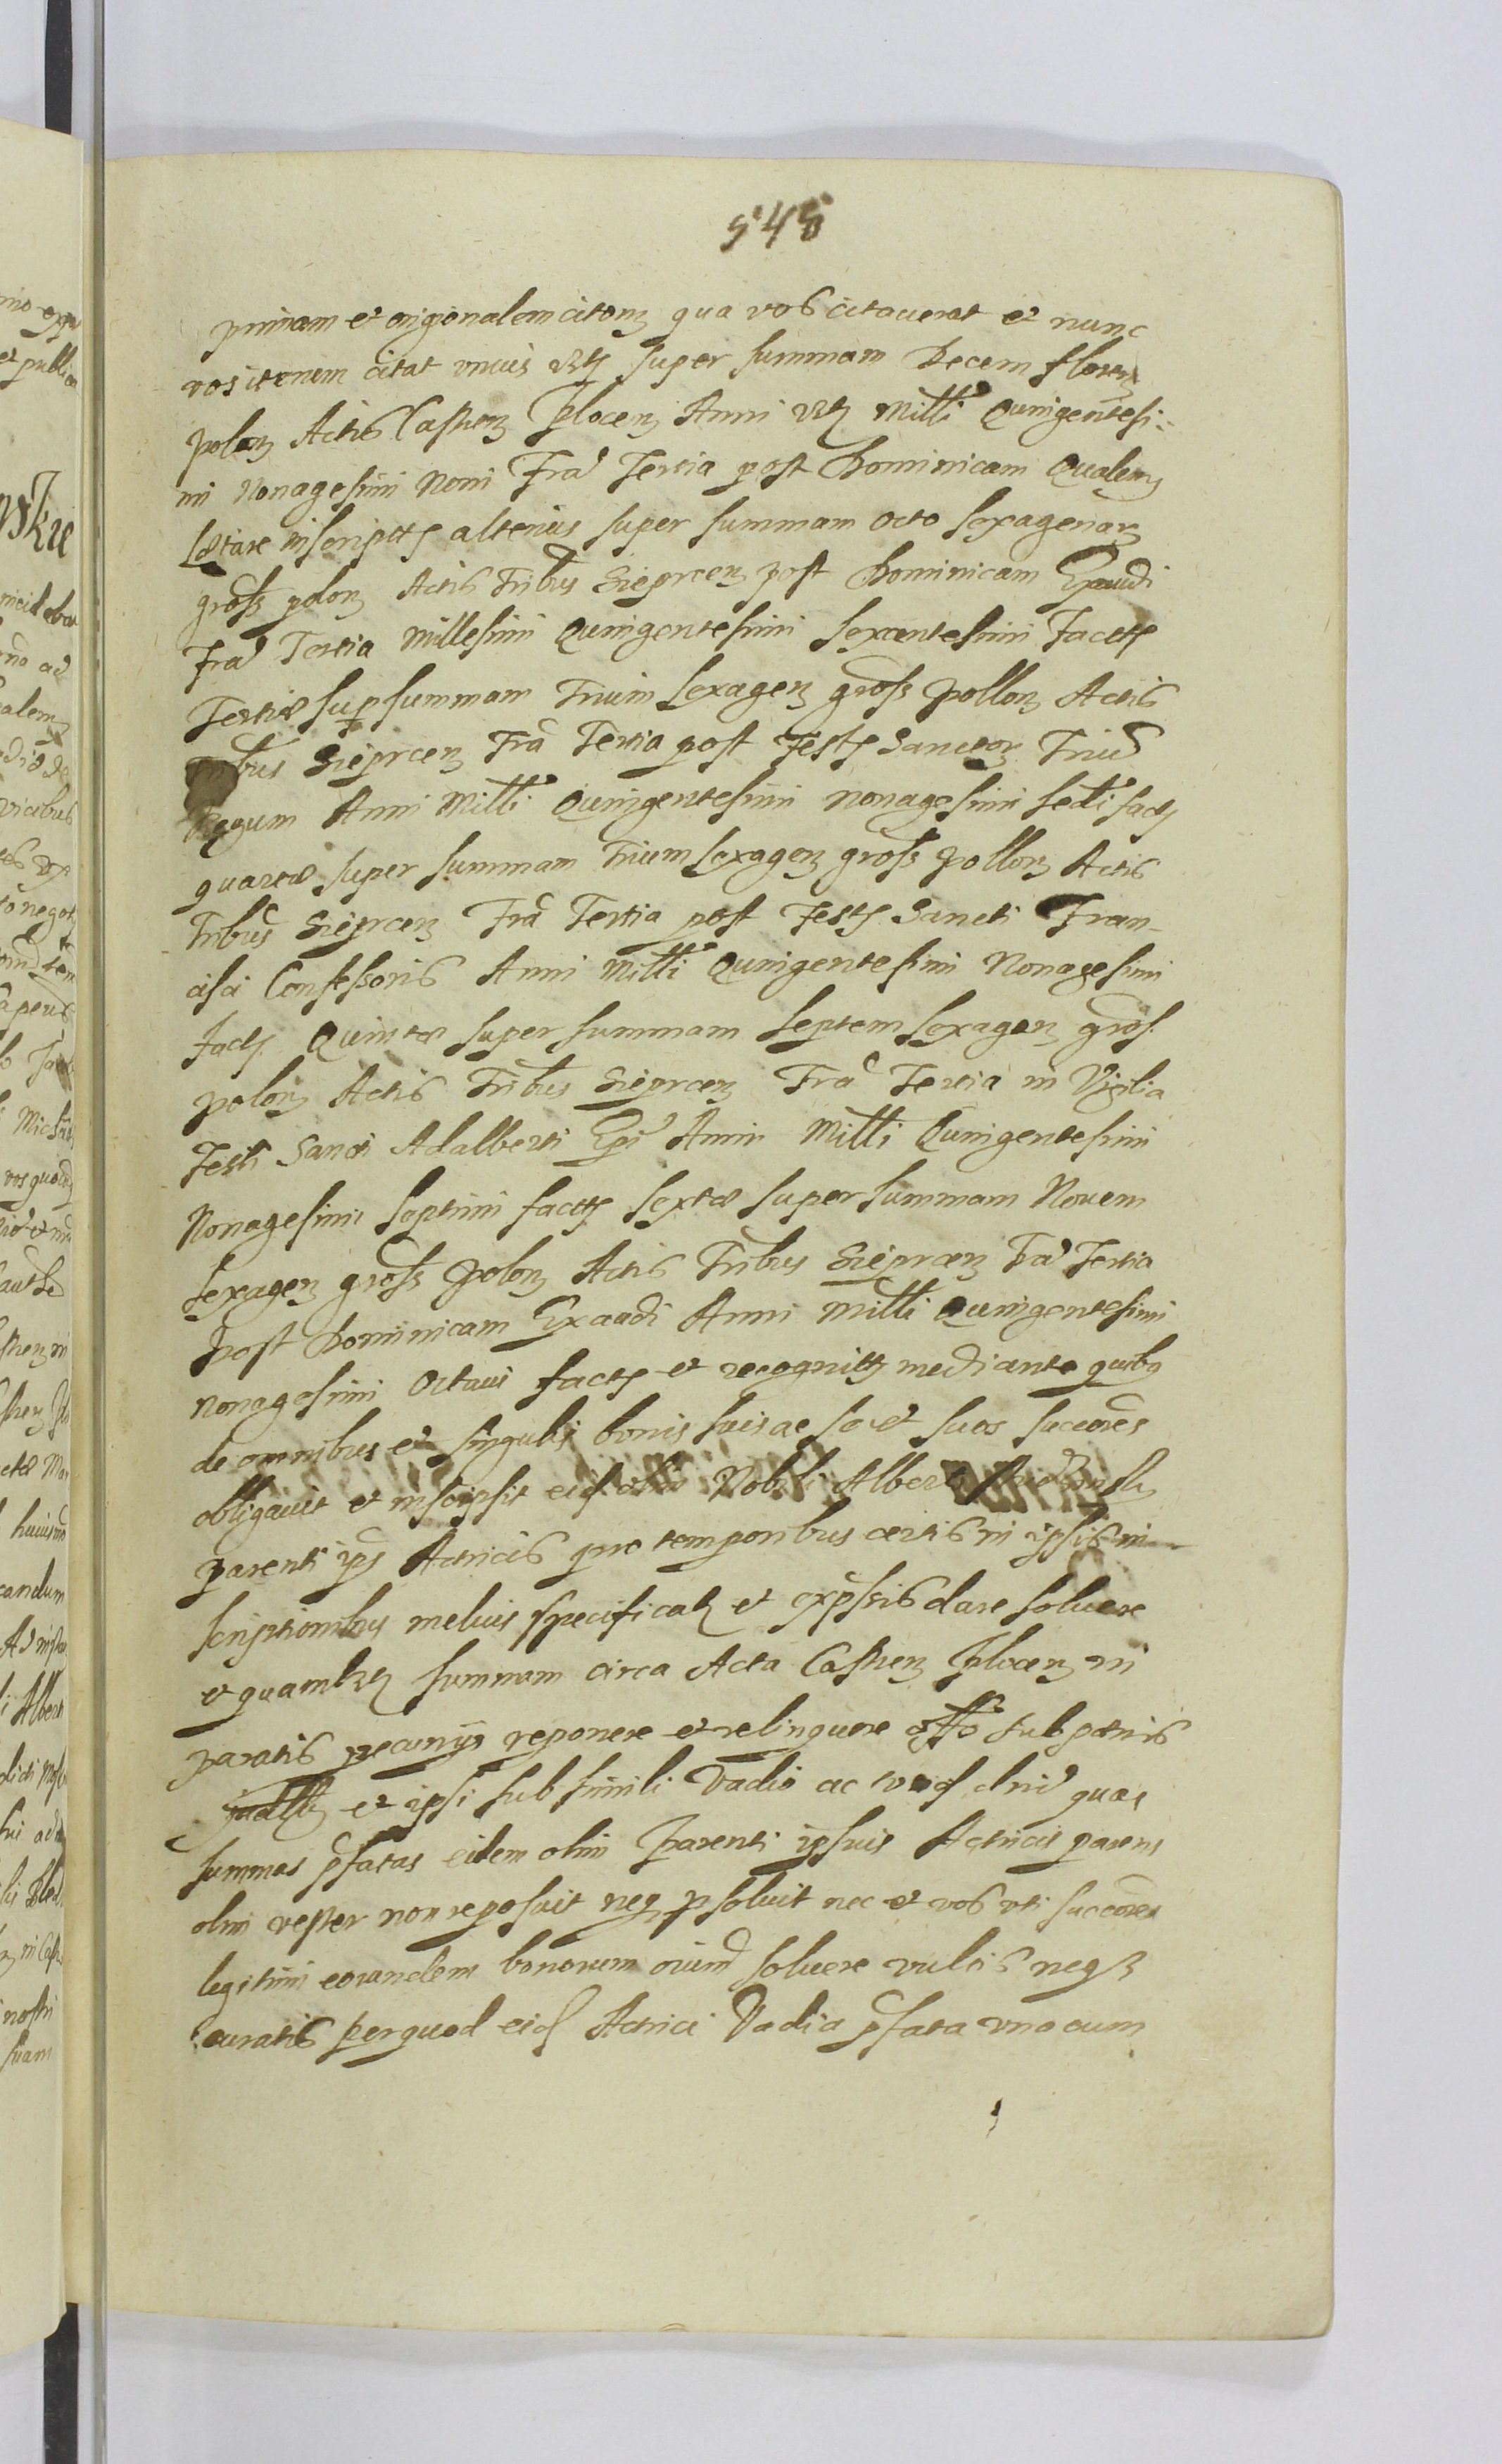 548
primam et originalem citonem qua vos citaverat et nunc
vos iterum citat unius videlicet super summam Decem floren
polon Actis Castren Plocen Anni videlicet Milli Quingentesi-
mi Nonagesimi Noni Fra Tertia post Dominicam Quadem
Lætare inscriptis alterius super summam octo sexagenar
gross polon Actis Tribus Sieprcen post Dominicam Exaudi
Fra Tertia Millesimi Quingentesimi sexcentesimi facttis
Tertiæ sup summam Trium sexagen gross pollon Actis
Tribus Sieprcen Fra Tertia post Festum Sanctor Triu
Regum Anni Milli Quingentesimi nonagesimi sedi fact
quartæ super summam Trium sexagen gross pollon Actis
Tribus Sieprcen Fra Tertia post Festum Sancti Fran-
cisci Confessoris Anni Milli Quingentesimi Nonagesimi
fact Quintæ super summam septem sexagen gros
polon Actis Tribus Sieprcen Fra Tertia in Vigilia
Festi Sancti Adalberti Epi Anni Milli Quingentesimi
Nonagesimi septimi factis sextæ super summam Novem
sexagen gross polon Actis Tribus Sieprcen Fra Tertia
post Dominicam Exaudi Anni Milli Quingentesimi
nonagesimi Octaui factis et recognitis mediante quibus
de omnibus et singulis bonis suis ac se et suos succores
obligauit et inscripsit eid olim Nobili Alberto
parenti ips Actricis pro temporibus certis in ipsis in-
scriptionibus melius specificat et expssis dare soluere
et quamlibet summam circa Acta Castren Plocen in
paratis pecunijs reponere et relinquere sub pænis
et ipsi sub simili Vadio ac quas
summas pfatas eidem olim Parenti ipsius Actricis parens
olim vester non reposuit neq psoluit nec et vos uti succores
legitimi eorundem bonorum oium soluere vultis neq
curatis per quod eid Actrici Vadia pfata una cum